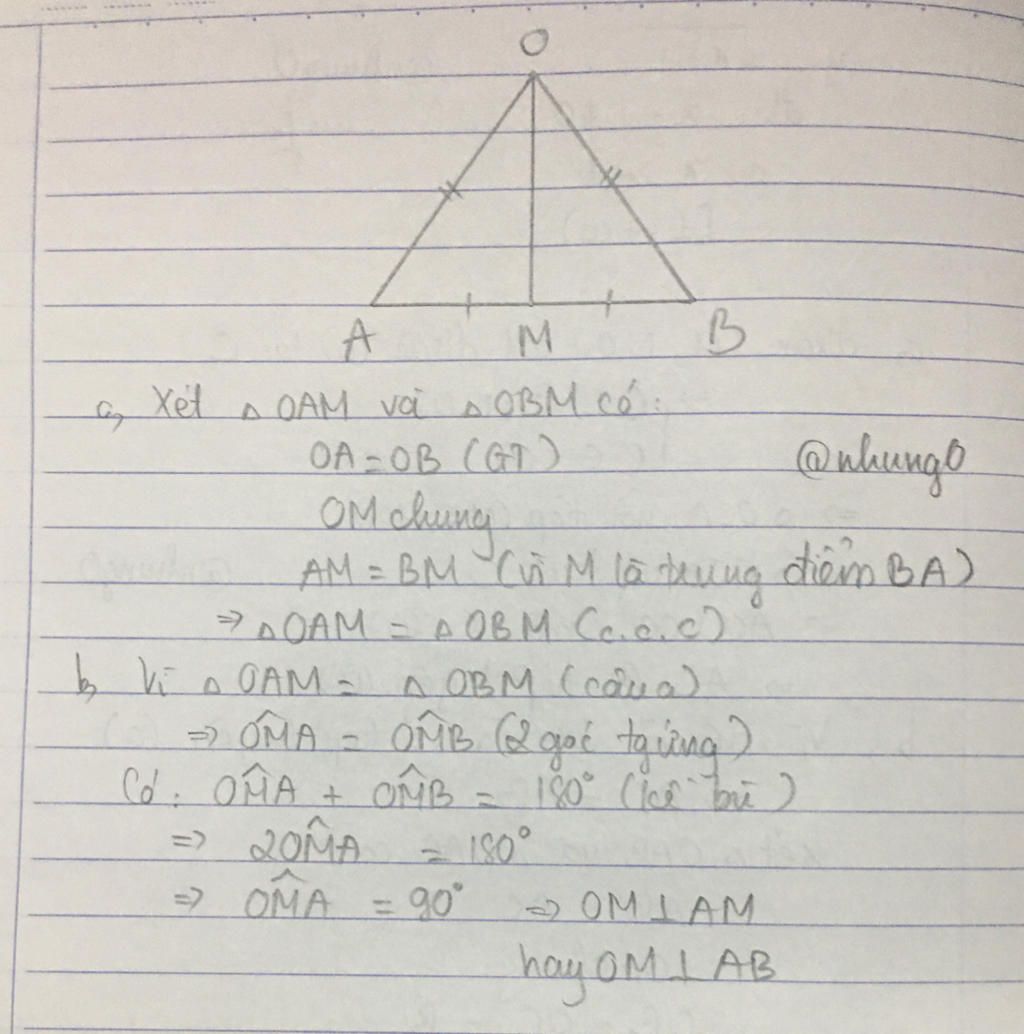 O
A M B
a, Xét △ OAM và △ OBM có:
OA = OB (GT)
@nhung0
OM chung
AM = BM (vì M là trung điểm BA)
=> △ OAM = △ OBM (c.c.c)
b, Vì △ OAM = △ OBM (câu a)
=> OM̂A = OM̂B (2 góc tgứng)
Có : OM̂A + OM̂B = 180° (kề bù)
=> 2OM̂A = 180°
=> OM̂A = 90° => OM ⊥ AM
hay OM ⊥ AB